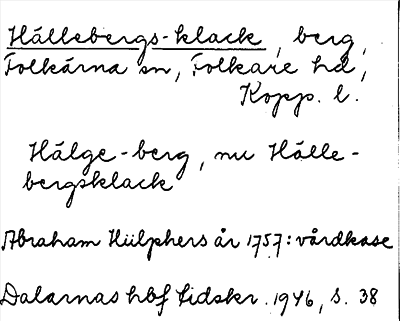 Hällebergs-klack, berg,
Folkärna sn, Folkare hd,
Kopp. l.
Hälge-berg, nu Hälle-
bergsklack
Abraham Hülphers år 1757: vårdkase
Dalarnas hbf tidskr. 1946, s. 38